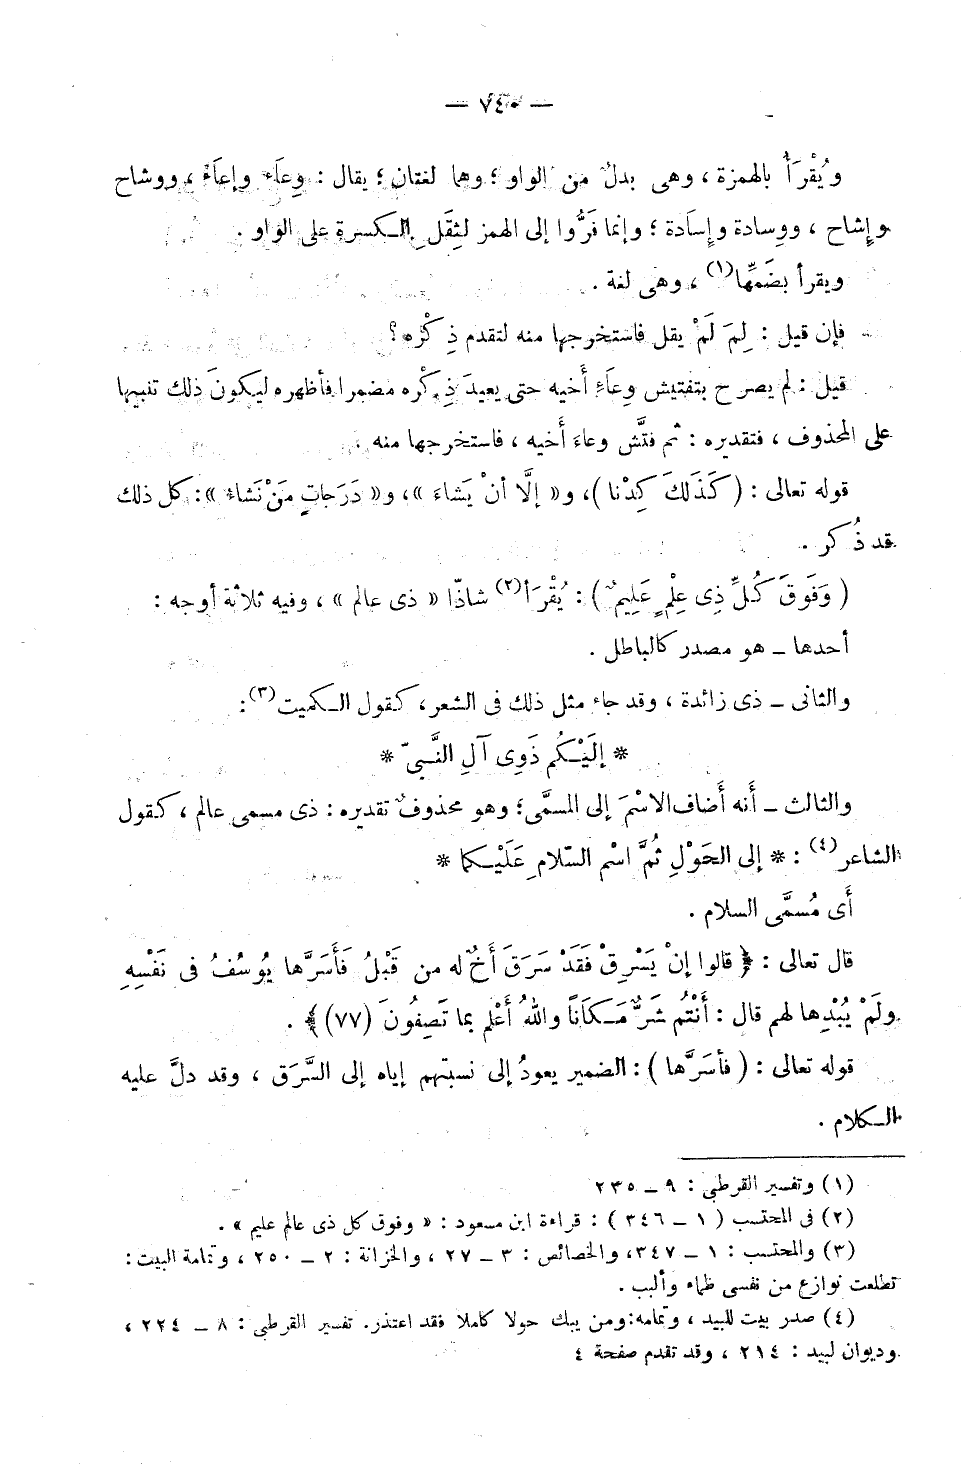 — ٧٤٠ —
ويُقْرَأُ بالهمزة ، وهى بدلٌ من الواو ؛ وهما لغتان ؛ يقال : وِعاَء وإعاَء ، ووشاح
وإِشاح ، ووِسادة وإِسَادة ؛ وإنما فَرُّوا إلى الهمز لثِقَل الـكسرة على الواو .
ويقرأ بضَمِّها(١) ، وهى لغة .
فإن قيل : لِمَ لَمْ يقل فاستخرجها منه لتقدم ذِكْرِه ؟
قيل : لم يصرح بتفتيش وِعَاءِ أَخيه حتى يعيدَ ذِكْره مضمرا فأظهره ليكونَ ذلك تنبيها
على المحذوف ، فتقديره : ثم فتَّش وعاءَ أَخيه ، فاستخرجها منه .
قوله تعالى : ( كَذَلكَ كِدْنا )، و« إلَّا أنْ يَشاءَ »، و« دَرَجاتٍ مَنْ نَشاءُ »: كل ذلك
قد ذُكر .
( وَفَوقَ كُلِّ ذِى عِلْمٍ عَلِيمٌ ) : يُقْرَأ(٢) شاذّا « ذى عالم » ، وفيه ثلاثة أوجه :
أحدها ـ هو مصدر كالباطل .
والثانى ـ ذى زائدة ، وقد جاء مثل ذلك فى الشعر، كـقول الـكميت(٣):
* إلَيْـكُم ذَوِى آلِ النَّـبىّ *
والثالث ـ أَنه أَضاف الاسْمَ إلى المسمَّى؛ وهو محذوفٌ تقديره : ذى مسمى عالم ، كـقول
الشاعر(٤) : * إلى الحَوْلِ ثُمَّ اسْم السّلامِ عَلَيْـكما *
أَى مُسمَّى السلام .
قال تعالى : ﴿ قالوا إنْ يَسْرِقْ فَقَدْ سَرَقَ أَخٌ له من قَبْلُ فَأَسَرَّها يُوسُفُ فى نَفْسِهِ
ولَمْ يُبْدِها لهم قال : أَنْتُم شَرٌّ مَـكَاناً واللهُ أَعْلم بما تَصِفُونَ (٧٧) ﴾ .
قوله تعالى : ( فأسَرَّها ) : الضمير يعودُ إلى نسبتهم إياه إلى السَّرَق ، وقد دلَّ عليه
الـكلام .
(١) وتفسير القرطبى : ٩ ـ ٢٣٥
(٢) فى المحتسب ( ١ ـ ٣٤٦ ) : قراءة ابن مسعود : « وفوق كل ذى عالم عليم » .
(٣) والمحتسب : ١ ـ ٣٤٧، والخصائص : ٣ ـ ٢٧ ، والخزانة : ٢ ـ ٢٥٠ ، وتمامة البيت :
تطلعت نوازع من نفسى ظماء وألبب .
(٤) صدر بيت للبيد ، وتمامه:ومن يبك حولا كاملا فقد اعتذر. تفسير القرطبى : ٨ ـ ٢٢٤ ،
وديوان لبيد : ٢١٤ ، وقد تقدم صفحة ٤